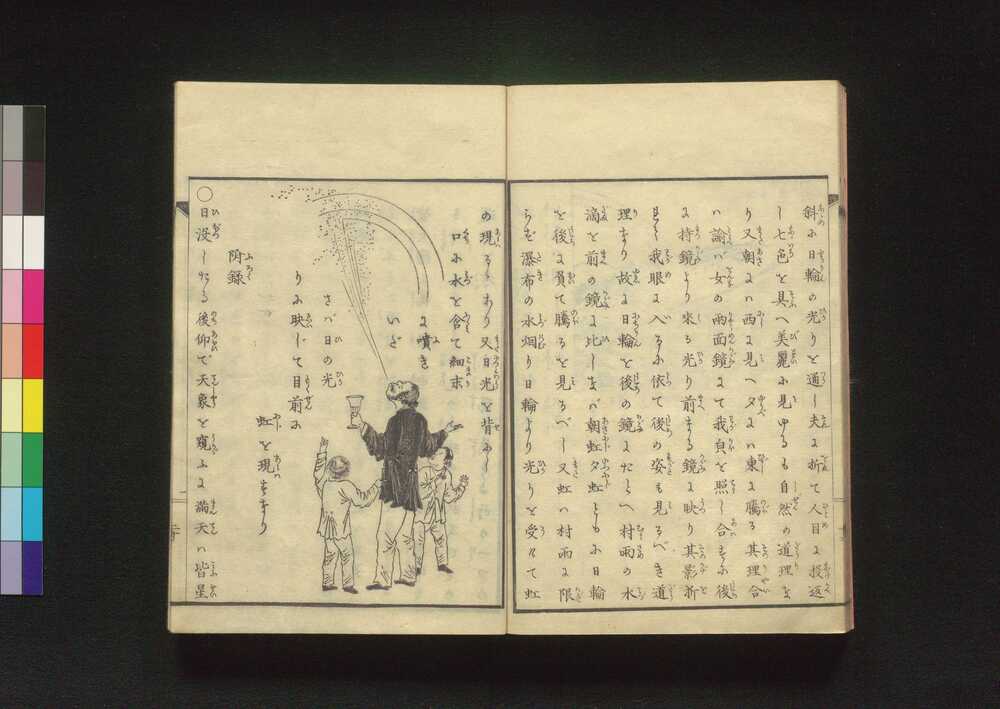 斜に日輪の光りを通し夫に折て人目に投返
し七色を具へ美麗に見ゆるも自然の道理ま
り又朝には西に見へ夕には東に騰る其理合
は諭ば女の両面鏡にて我貞を照し合すに後
に持鏡より来る光り前なる鏡に映り其影折
て我眼に入るに依て後の姿も見るべき道
理なり故に日輪を後の鏡にたとへ村雨の水
滴を前の鏡に比しまば朝虹夕虹ともに日輪
を後に負て騰るを見るべし又虹は村雨に限
らず瀑布の水烟り日輪より光りを受けて虹
の現るゝあり又日光を背に
口に水を含て細末
に噴き
いだ
さば日の光
りに映して目前に
虹を現すなり
附録
○日没したる後仰で天象を窺ふに満天は皆星